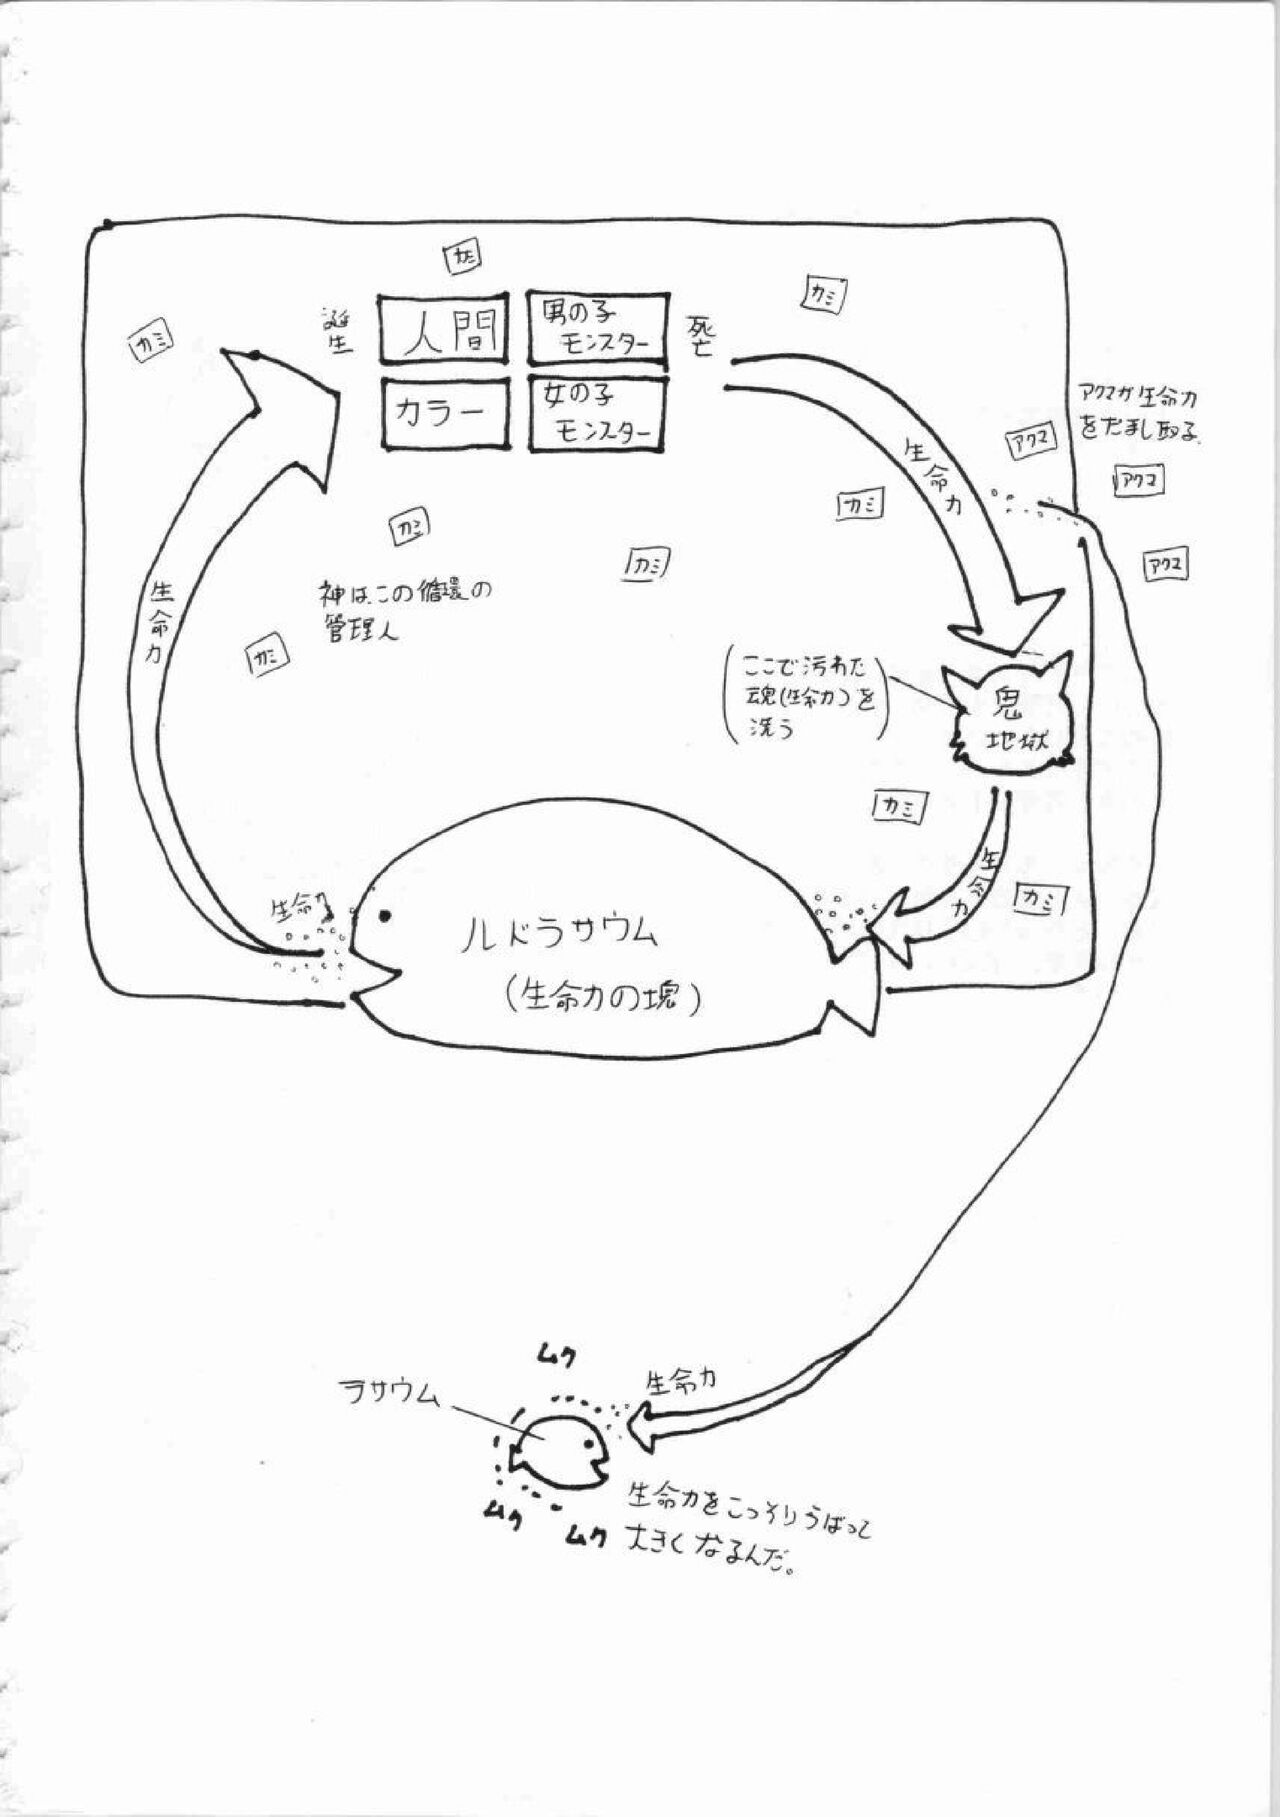 カミ
カミ
カミ
誕生
人間
男の子
モンスター
カラー
女の子
モンスター
死亡
生命力
アクマが生命力
をだまし取る.
アクマ
アクマ
アクマ
カミ
カミ
カミ
カミ
神は、この循環の
管理人
生命力
ここで汚れた
魂(生命力)を
洗う
鬼
地獄
カミ
生命力
カミ
生命力
ルドラサウム
(生命力の塊)
ムク
ラサウム
生命力
ムク
ムク
生命力をこっそりうばって
大きくなるんだ。